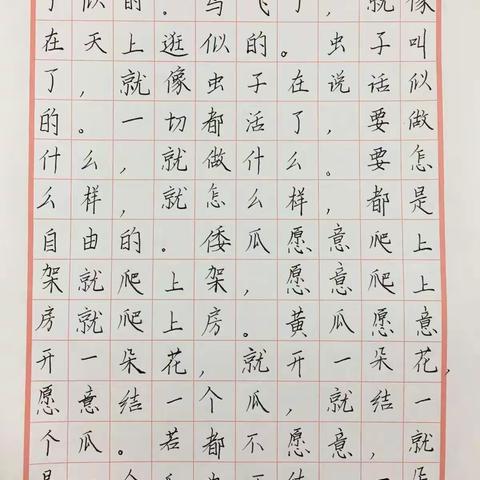 了似的。鸟飞了，就像
在天上逛似的。虫子叫
了，就像虫子在说话似
的。一切都活了，要做
什么，就做什么。要怎
么样，就怎么样，都是
自由的。倭瓜愿意爬上
架就爬上架，愿意爬上
房就爬上房。黄瓜愿意
开一朵花，就开一朵花，
愿意结一个瓜，就结一
个瓜。若都不愿意，就